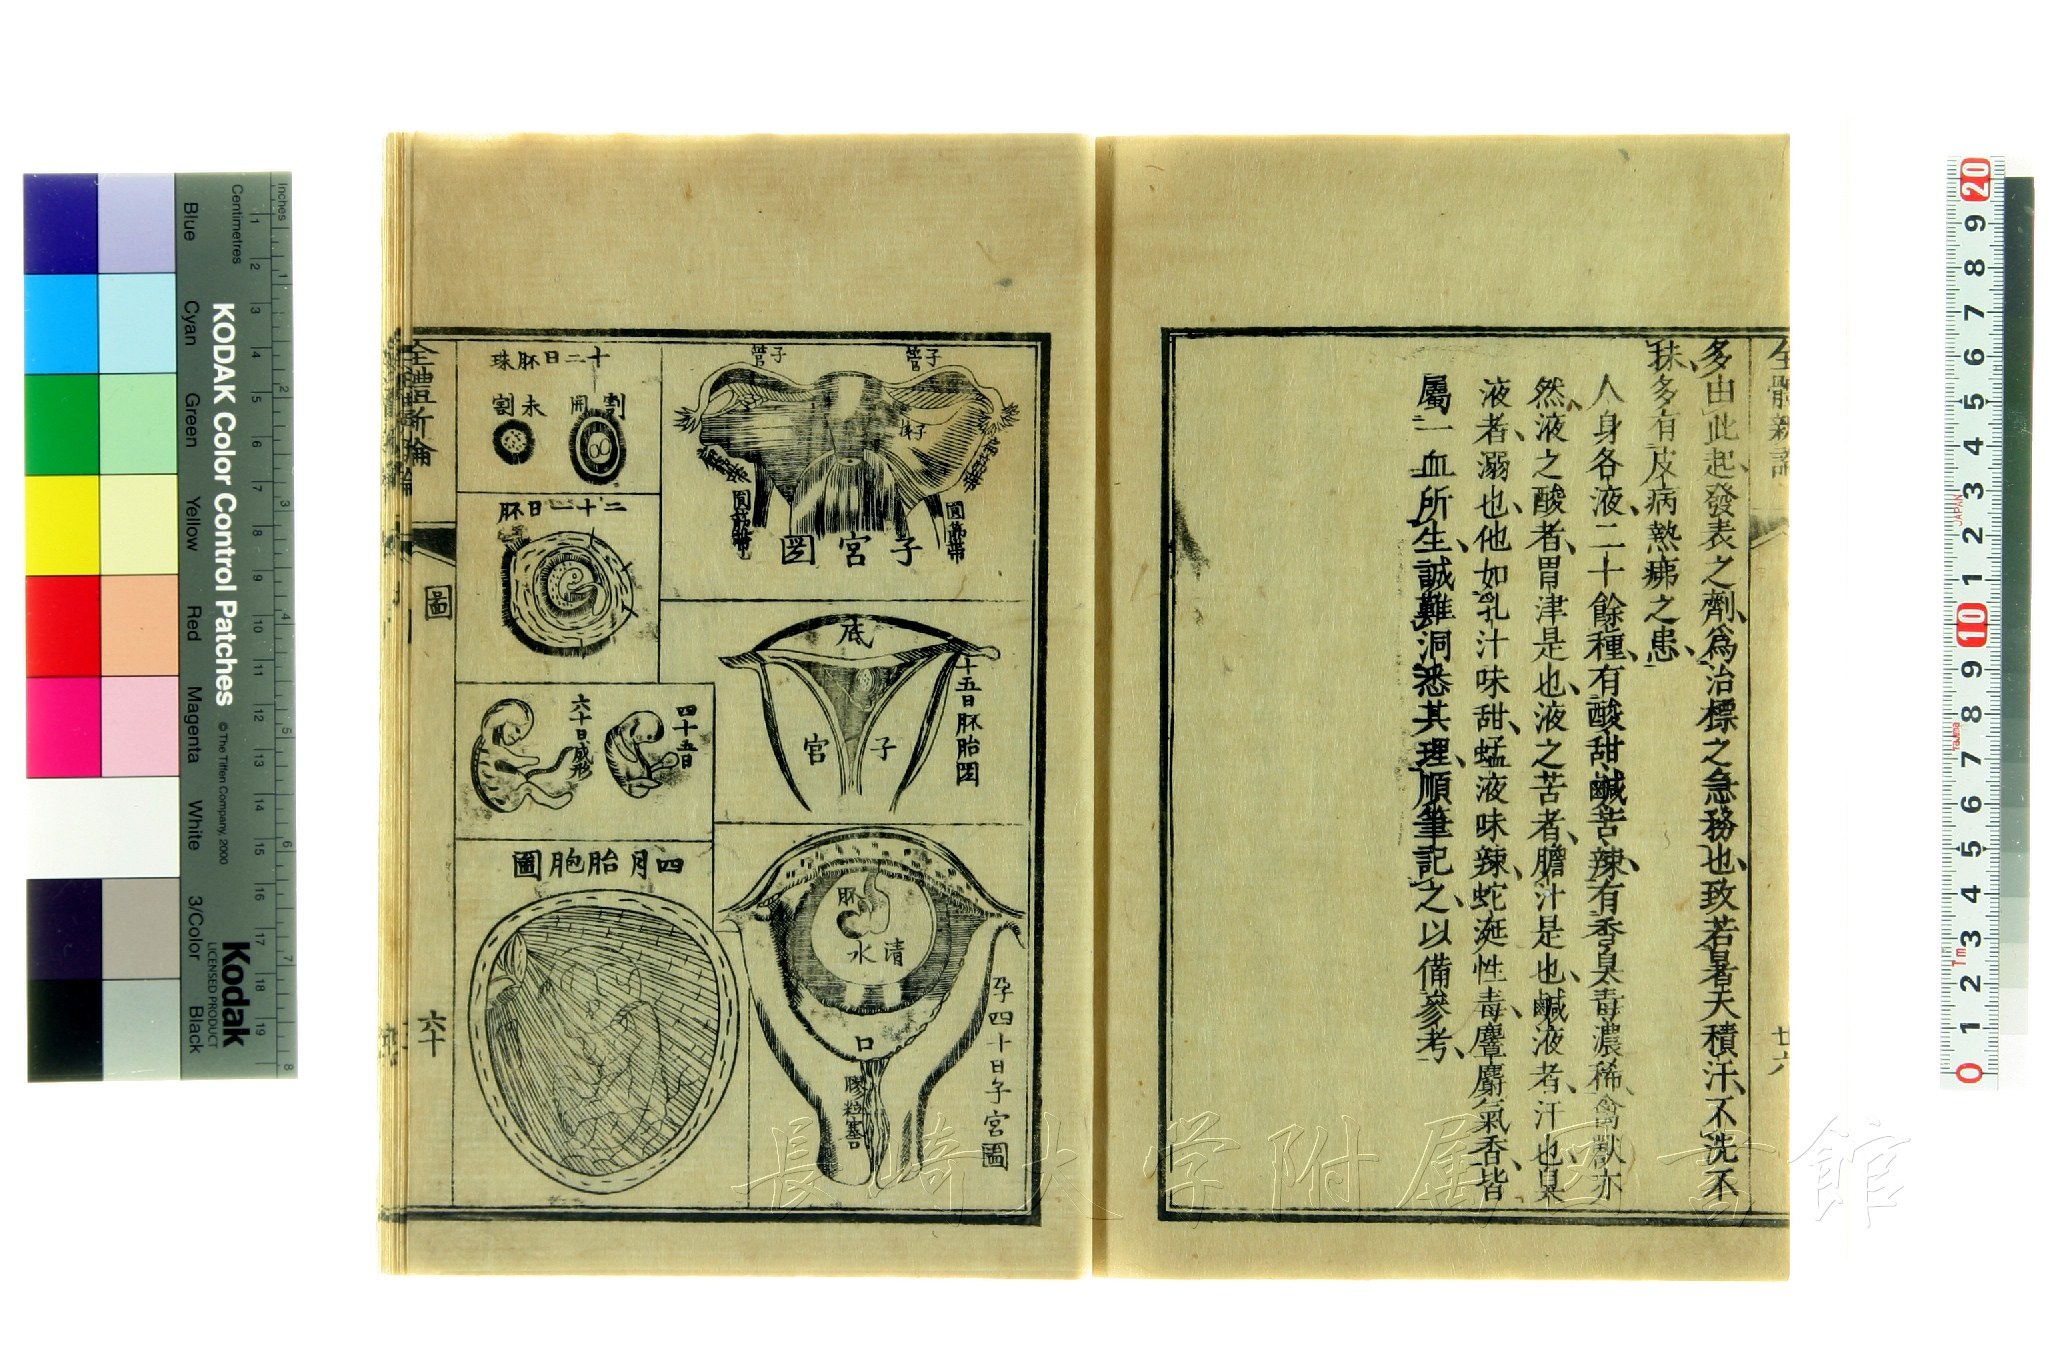 全體新論
廿六
多由此起、發表之劑、爲治標之急務也、致若暑天積汗、不洗不
抹、多有皮病熱痱之患、
人身各液、二十餘種、有酸甜鹹苦辣、有香臭毒濃稀、禽獸亦
然、液之酸者、胃津是也、液之苦者、膽汁是也、鹹液者、汗也、臭
液者、溺也、他如乳汁味甜、蜢液味辣、蛇涎性毒、麞麝氣香、皆
屬一血所生、誠難洞悉其理、順筆記之、以備參考、
子管
子管
圓筋帶
圓筋帶
子宮圖
底
子宮
十五日胚胎圖
胚
清水
口
膠粒塞
孕四十日子宮圖
十二日胚珠
割開
未割
二十一日胚
四十五日
六十日成形
四月胎胞圖
全體新論
圖
六十
KODAK Color Control Patches
© The Tiffen Company, 2000
Kodak
LICENSED PRODUCT
Inches
Centimetres
Blue
Cyan
Green
Yellow
Red
Magenta
White
3/Color
Black
1 2 3 4 5 6 7 8 9 10 11 12 13 14 15 16 17 18 19
1 2 3 4 5 6 7 8
20 9 8 7 6 5 4 3 2 1 10 9 8 7 6 5 4 3 2 1 0
JAPAN
長崎大学附属図書館